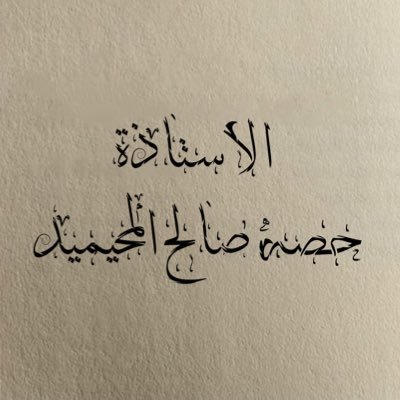 الأستاذة
حصة صالح المحيميد